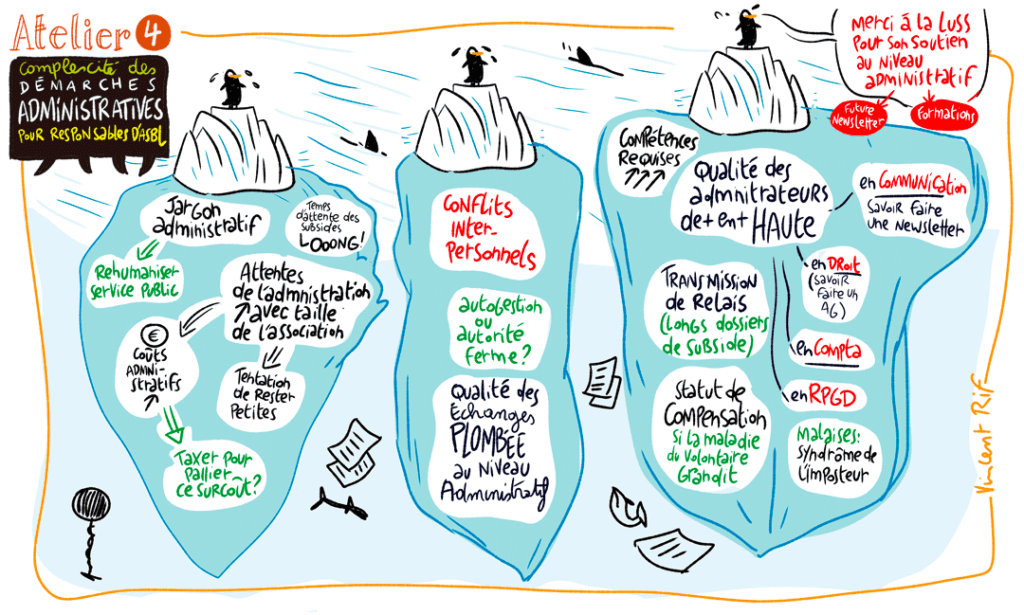 Atelier 4
Complexité des
DÉMARCHES
ADMINISTRATIVES
POUR RESPONSABLES D'ASBL
Jargon
administratif
Temps
d'attente des
subsides
LOOONG!
Rehumaniser
service public
Attentes
de l'admnistration
↗ avec taille
de l'association
€
Coûts
ADMNI-
stratifs
↗
Tentation
de Rester
Petites
Taxer pour
pallier
ce surcoût?
CONFLITS
INTER-
PERSONNELS
autogestion
ou
autorité
ferme?
Qualité des
Echanges
PLOMBÉE
au Niveau
Administratif
Merci à la LUSS
Pour son soutien
au niveau
administratif
Future
Newsletter
Formations
Compétences
Requises
↗↗↗
Qualité des
admnitrateurs
de + en + HAUTE
en COMMUNICATION
SAVOIR FAIRE
UNE NEWSLETTER
en DROIT
(SAVOIR
FAIRE UN
AG)
en COMPTA
en RPGD
TRANSMISSION
de Relais
(Longs dossiers
de subside)
Statut de
COMPENSATION
Si la maladie
du volontaire
Grandit
Malaises:
Syndrôme de
L'imposteur
Vincent Rif